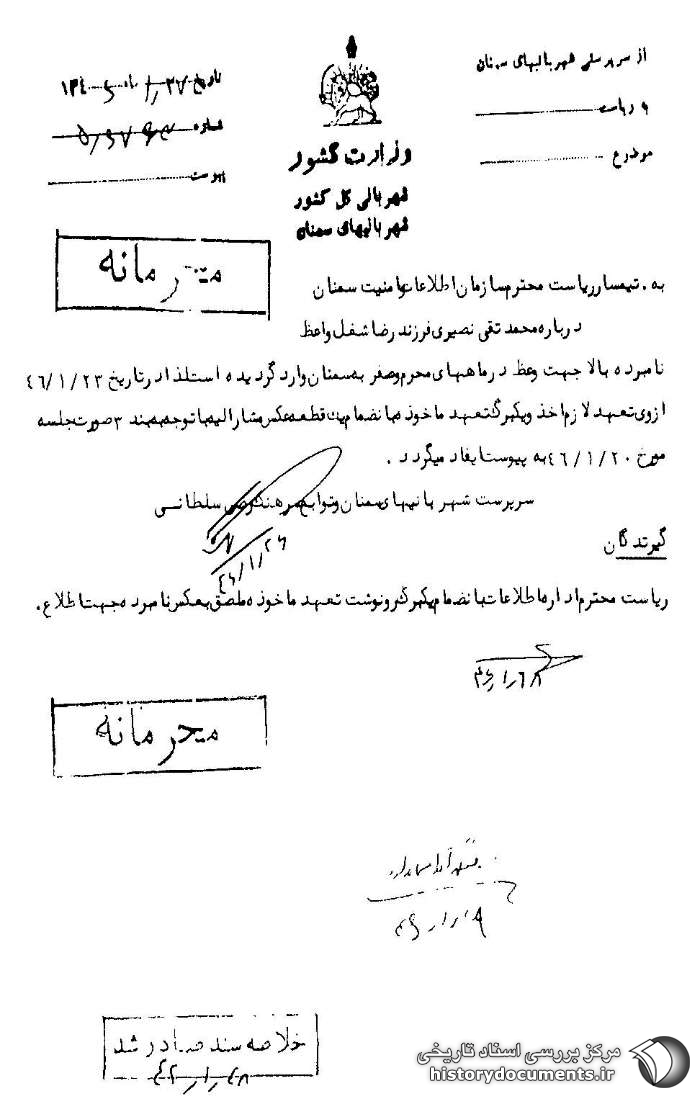 از سرپرستی شهربانیهای سمنان
به ریاست
موضوع
وزارت کشور
شهربانی کل کشور
شهربانیهای سمنان
تاریخ ۲۷/۱/
شماره
پیوست
محرمانه
به . تیمسار ریاست محترم سازمان اطلاعات و امنیت سمنان
درباره محمد تقی نصیری فرزند رضا شغل واعظ
نامبرده بالا جهت وعظ در ماههای محرم و صفر به سمنان وارد گردیده است لذا در تاریخ ۴۶/۱/۲۳
از وی تعهد لازم اخذ و یکبرگ تعهد ماخوذه بانضمام یک قطعه عکس مشارالیه با توجه به بند ۳ صورت جلسه
مورخ ۴۶/۱/۲۰ به پیوست ایفاد میگردد .
سرپرست شهربانیهای سمنان و توابع سرهنگ سلطانی
۴۶/۱/۲۶
گیرندگان
ریاست محترم اداره اطلاعات بانضمام یکبرگ رونوشت تعهد ماخوذه ملصق بعکس نامبرده جهت اطلاع .
محرمانه
خلاصه سند صادر شد
مرکز بررسی اسناد تاریخی
historydocuments.ir